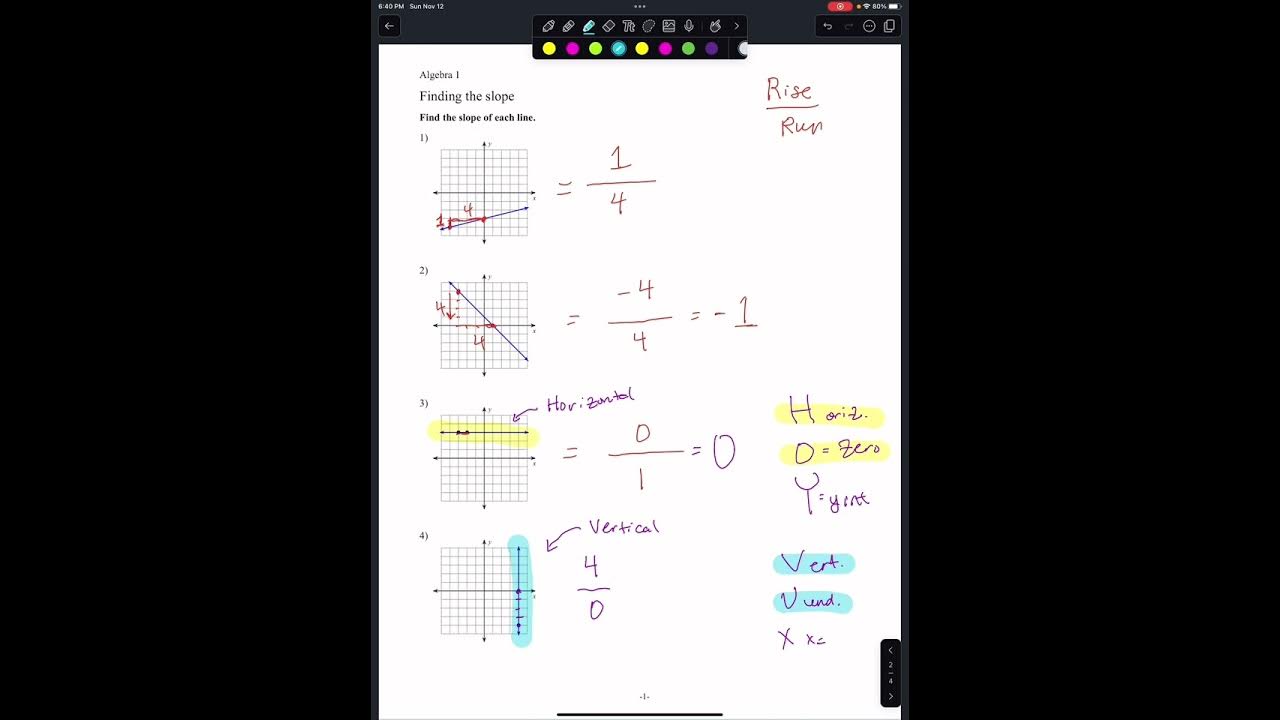 6:40 PM Sun Nov 12
80%
Tт
Algebra 1
Finding the slope
Find the slope of each line.
Rise
Run
1)
y
x
1
4
= 1
4
2)
y
x
4
4
= -4 = -1
4
3)
y
x
Horizontal
= 0 = 0
1
Horiz.
0 = Zero
Y = yint
4)
y
x
Vertical
4
0
Vert.
Vund.
X x=
2
4
-1-